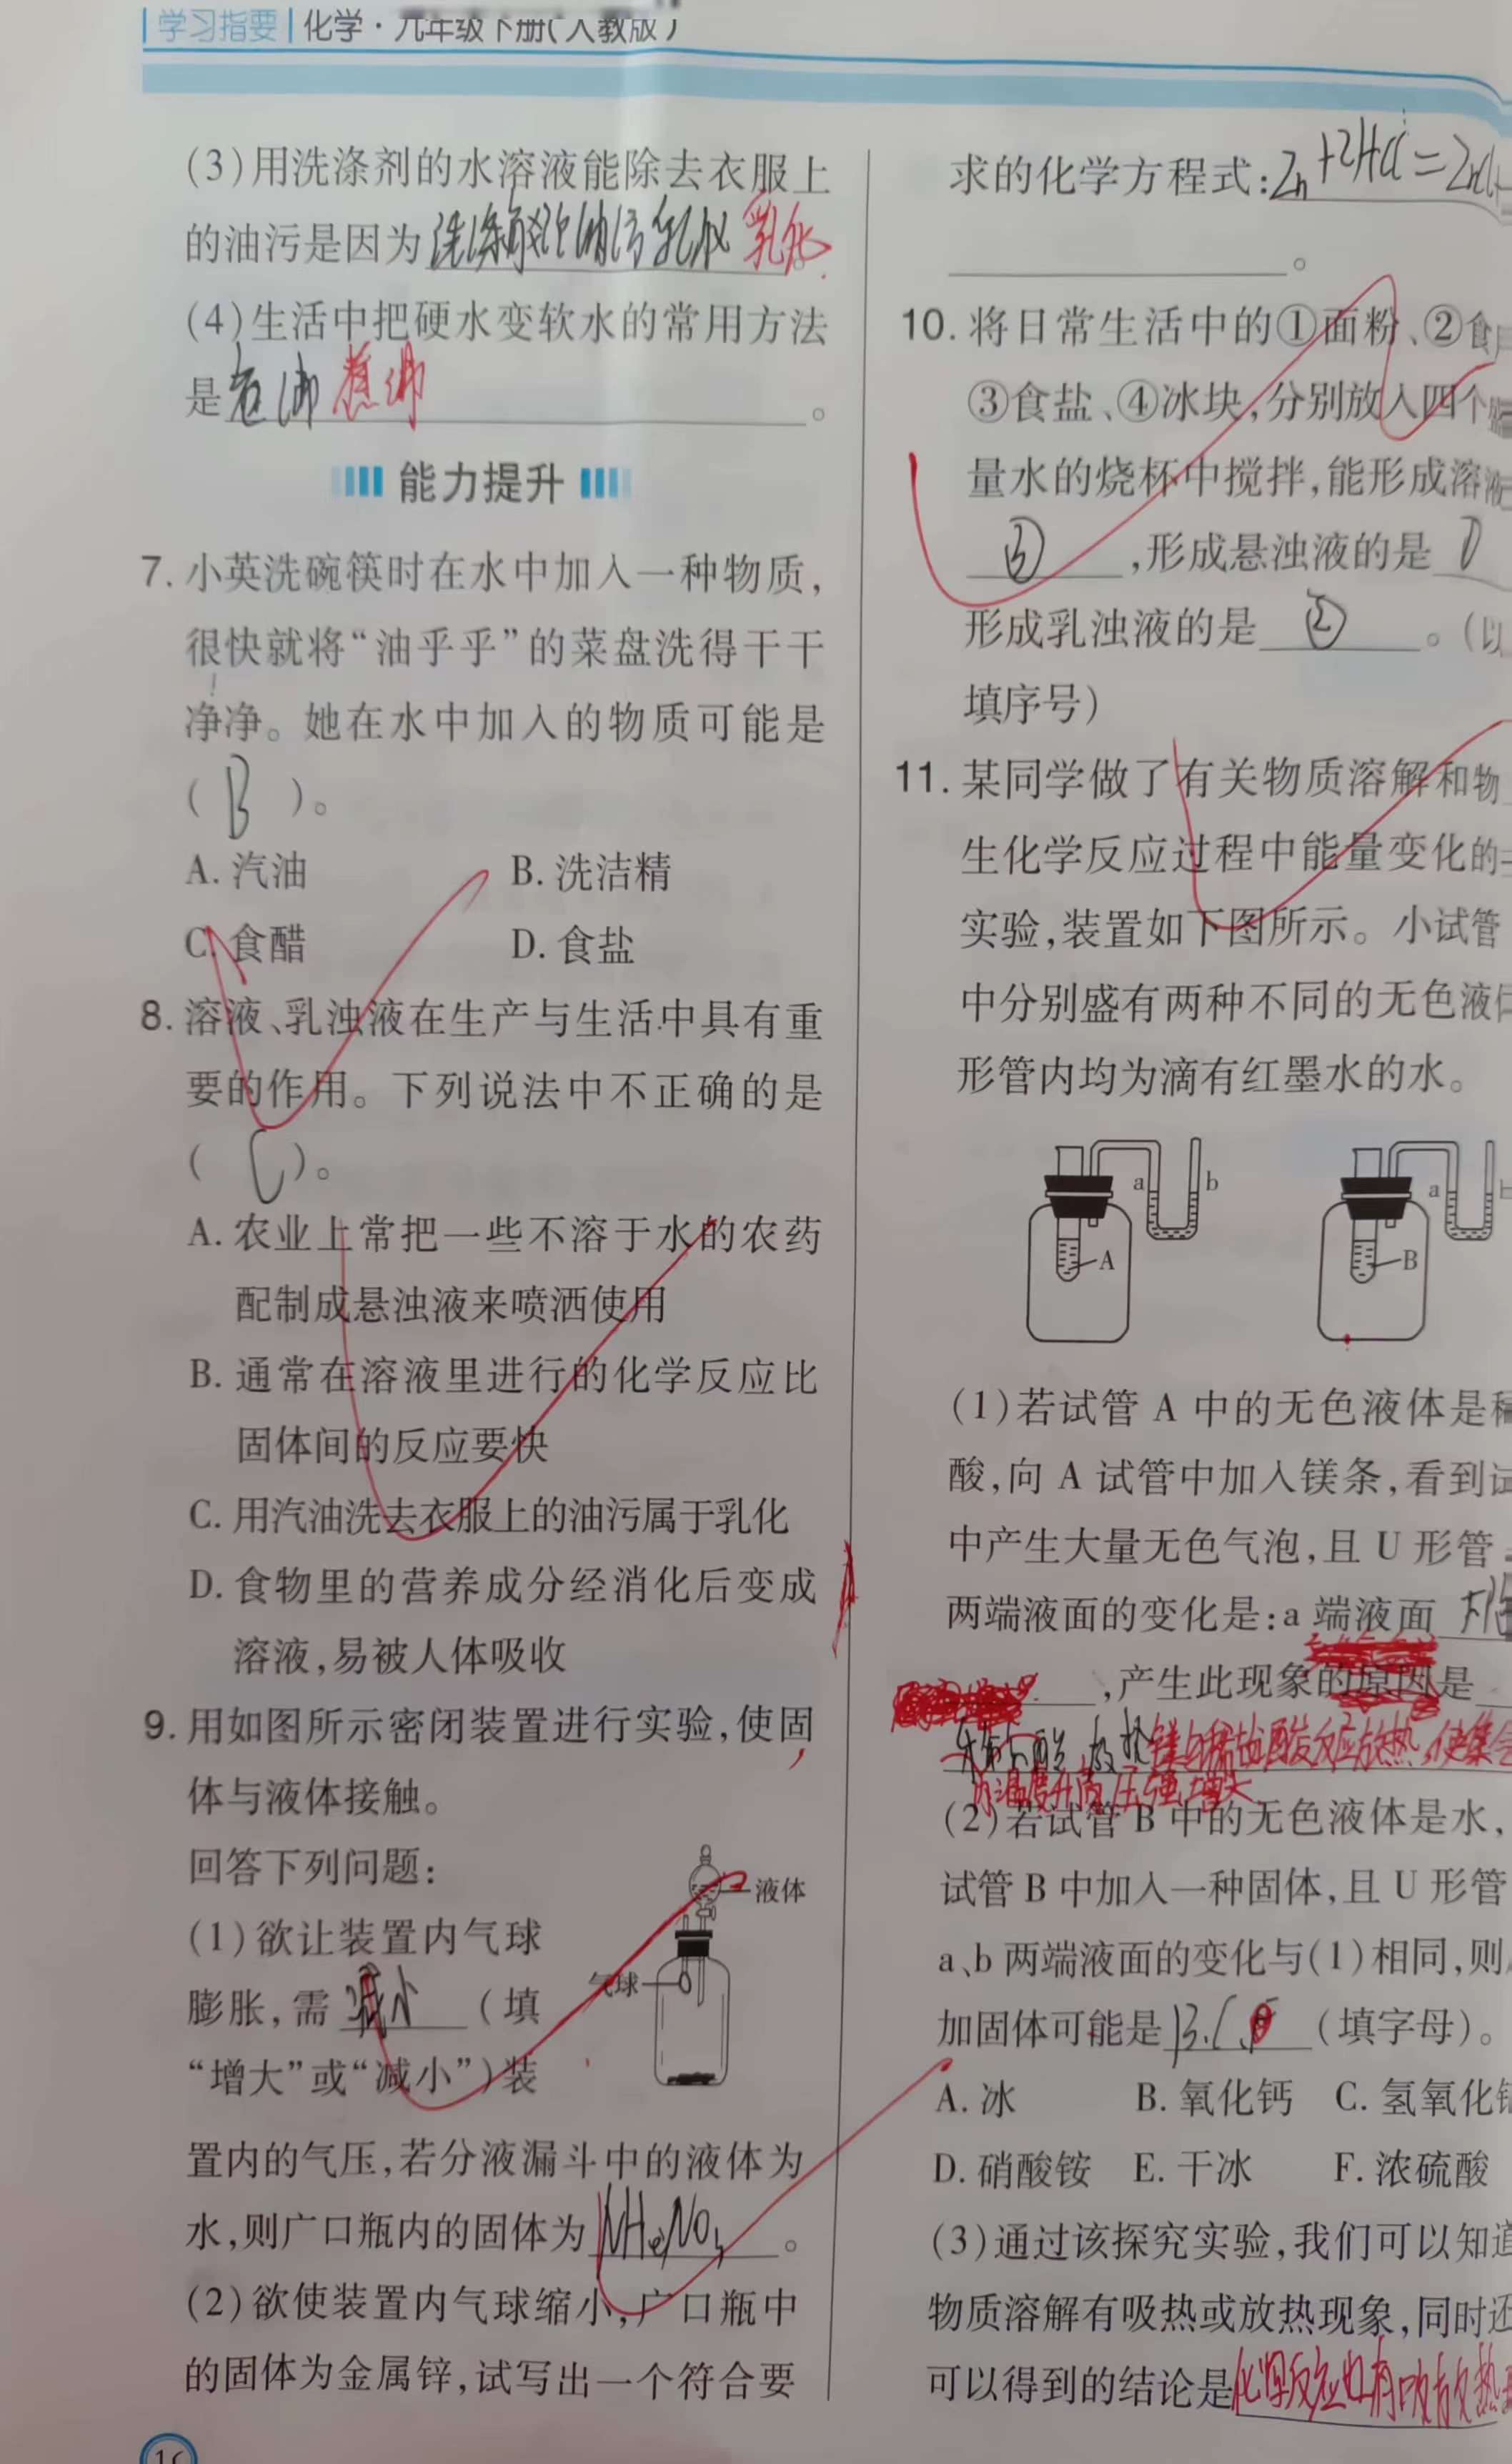 学习指要 化学·九年级下册(人教版)
(3)用洗涤剂的水溶液能除去衣服上
的油污是因为 乳化 乳化。
(4)生活中把硬水变软水的常用方法
是 。
能力提升
7. 小英洗碗筷时在水中加入一种物质,
很快就将“油乎乎”的菜盘洗得干干
净净。她在水中加入的物质可能是
( B )。
A. 汽油 B. 洗洁精
C. 食醋 D. 食盐
8. 溶液、乳浊液在生产与生活中具有重
要的作用。下列说法中不正确的是
( C )。
A. 农业上常把一些不溶于水的农药
配制成悬浊液来喷洒使用
B. 通常在溶液里进行的化学反应比
固体间的反应要快
C. 用汽油洗去衣服上的油污属于乳化
D. 食物里的营养成分经消化后变成
溶液,易被人体吸收
9. 用如图所示密闭装置进行实验,使固
体与液体接触。
回答下列问题:
液体
(1)欲让装置内气球
气球
膨胀,需 减小 (填
“增大”或“减小”)装
置内的气压,若分液漏斗中的液体为
水,则广口瓶内的固体为 。
(2)欲使装置内气球缩小,广口瓶中
的固体为金属锌,试写出一个符合要
16
求的化学方程式: Zn+2HCl=
。
10. 将日常生活中的①面粉、②食
③食盐、④冰块,分别放入四个
量水的烧杯中搅拌,能形成溶
③ ,形成悬浊液的是 ①
形成乳浊液的是 ② 。(以
填序号)
11. 某同学做了有关物质溶解和物
生化学反应过程中能量变化的
实验,装置如下图所示。小试管
中分别盛有两种不同的无色液
形管内均为滴有红墨水的水。
a b a
A B
(1)若试管 A 中的无色液体是
酸,向 A 试管中加入镁条,看到
中产生大量无色气泡,且 U 形管
两端液面的变化是:a 端液面 下
,产生此现象的原因是
镁与稀盐酸反应放热,使集
内温度升高 压强增大
(2)若试管 B 中的无色液体是水,
试管 B 中加入一种固体,且 U 形管
a、b 两端液面的变化与(1)相同,则
加固体可能是 B.C (填字母)。
A. 冰 B. 氧化钙 C. 氢氧化
D. 硝酸铵 E. 干冰 F. 浓硫酸
(3)通过该探究实验,我们可以知道
物质溶解有吸热或放热现象,同时还
可以得到的结论是 化学反应也有吸放热